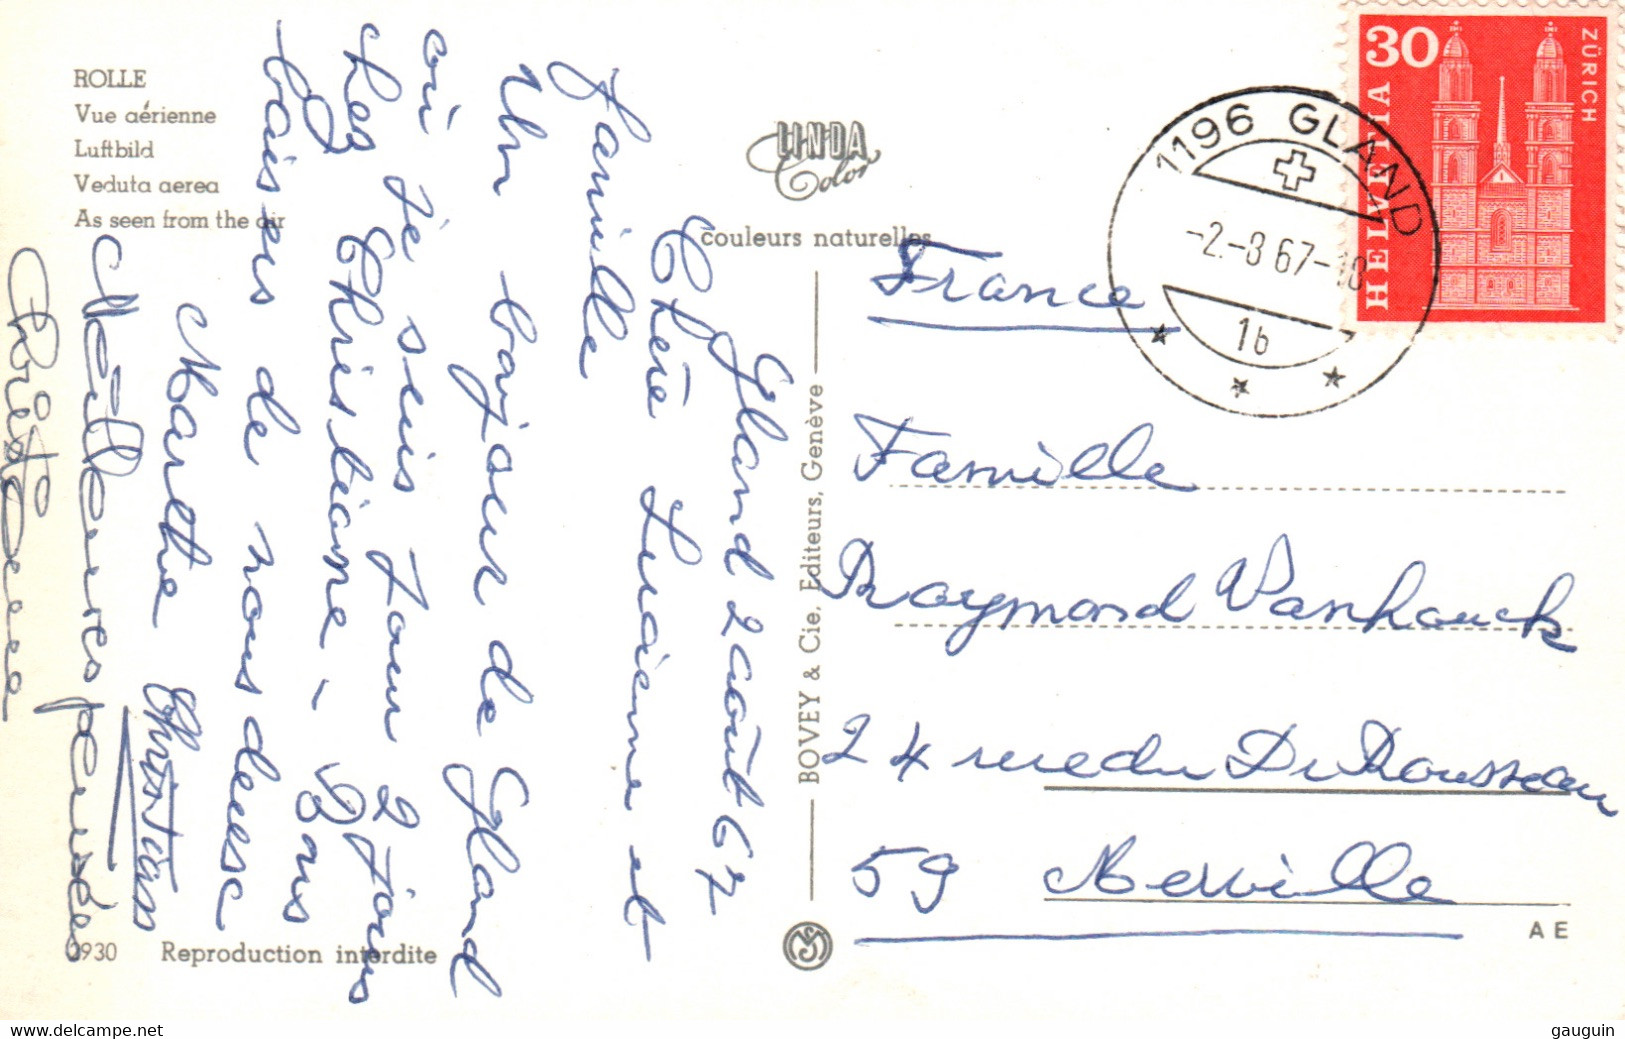 ROLLE
Vue aérienne
Luftbild
Veduta aerea
As seen from the air
LINDA
Color
couleurs naturelles
Gland 2 août 67
Chère Lucienne et
famille
Un bonjour de Gland
où je suis pour 2 jours
chez Christiane - Bons
baisers de nous deux
Marthe Christian
Meilleures pensées
Christiane
0930 Reproduction interdite
BOVEY & Cie, Editeurs, Genève
France
Famille
Raymond Vanhouck
24 rue du Dr Rousseau
59 Merville
A E
1196 GLAND
-2.-8 67-18
1b
30
HELVETIA
ZÜRICH
www.delcampe.net
gauguin